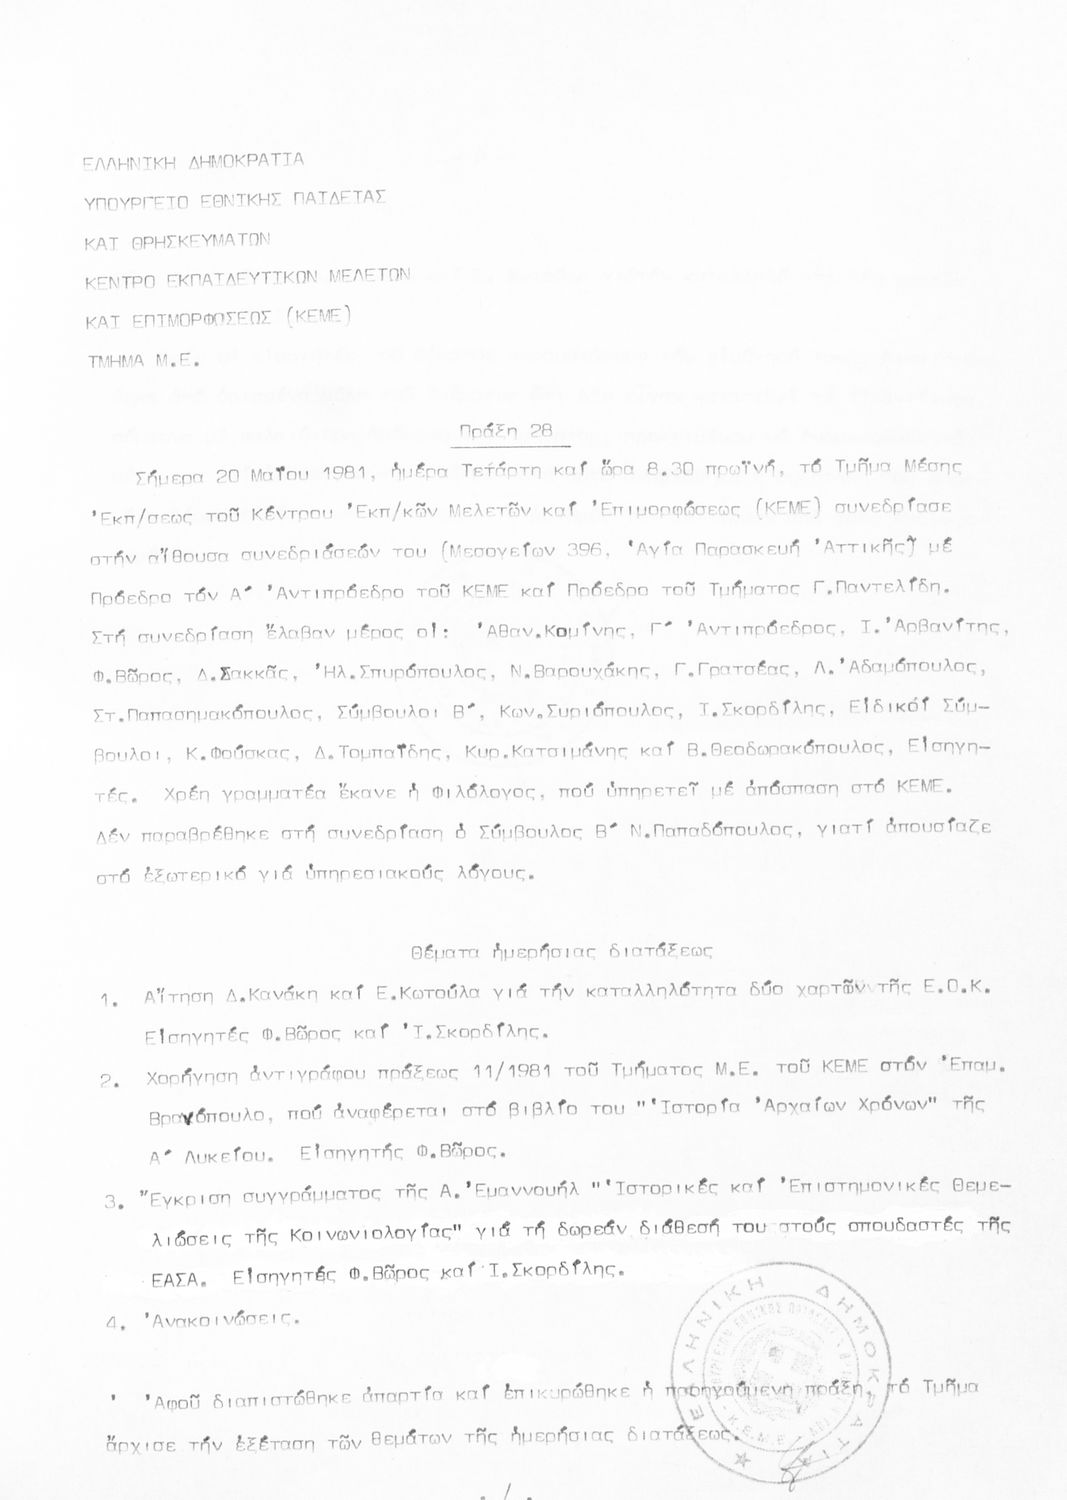 ΕΛΛΗΝΙΚΗ ΔΗΜΟΚΡΑΤΙΑ
ΥΠΟΥΡΓΕΙΟ ΕΘΝΙΚΗΣ ΠΑΙΔΕΙΑΣ
ΚΑΙ ΘΡΗΣΚΕΥΜΑΤΩΝ
ΚΕΝΤΡΟ ΕΚΠΑΙΔΕΥΤΙΚΩΝ ΜΕΛΕΤΩΝ
ΚΑΙ ΕΠΙΜΟΡΦΩΣΕΩΣ (ΚΕΜΕ)
ΤΜΗΜΑ Μ.Ε.
Πράξη 28
Σήμερα 20 Μαΐου 1981, ἡμέρα Τετάρτη καί ὥρα 8.30 πρωϊνή, τό Τμῆμα Μέσης
Ἐκπ/σεως τοῦ Κέντρου Ἐκπ/κῶν Μελετῶν καί Ἐπιμορφώσεως (ΚΕΜΕ) συνεδρίασε
στήν αἴθουσα συνεδριάσεών του (Μεσογείων 396, Ἁγία Παρασκευή Ἀττικῆς) μέ
Πρόεδρο τόν Α΄ Ἀντιπρόεδρο τοῦ ΚΕΜΕ καί Πρόεδρο τοῦ Τμήματος Γ.Παντελίδη.
Στή συνεδρίαση ἔλαβαν μέρος οἱ: Ἀθαν.Κομίνης, Γ΄ Ἀντιπρόεδρος, Ι.Ἀρβανίτης,
Φ.Βῶρος, Δ.Σακκᾶς, Ἠλ.Σπυρόπουλος, Ν.Βαρουχάκης, Γ.Γρατσέας, Λ.Ἀδαμόπουλος,
Στ.Παπασημακόπουλος, Σύμβουλοι Β΄, Κων.Συριόπουλος, Ι.Σκορδίλης, Εἰδικοί Σύμ-
βουλοι, Κ.Φούσκας, Δ.Τομπαΐδης, Κυρ.Κατσιμάνης καί Β.Θεοδωρακόπουλος, Εἰσηγη-
τές. Χρέη γραμματέα ἔκανε ἡ Φιλόλογος, πού ὑπηρετεῖ μέ ἀπόσπαση στό ΚΕΜΕ.
Δέν παραβρέθηκε στή συνεδρίαση ὁ Σύμβουλος Β΄ Ν.Παπαδόπουλος, γιατί ἀπουσίαζε
στό ἐξωτερικό γιά ὑπηρεσιακούς λόγους.
Θέματα ἡμερήσιας διατάξεως
1. Αἴτηση Δ.Κανάκη καί Ε.Κωτούλα γιά τήν καταλληλότητα δύο χαρτῶν τῆς Ε.Ο.Κ.
Εἰσηγητές Φ.Βῶρος καί Ἰ.Σκορδίλης.
2. Χορήγηση ἀντιγράφου πράξεως 11/1981 τοῦ Τμήματος Μ.Ε. τοῦ ΚΕΜΕ στόν Ἐπαμ.
Βρανόπουλο, πού ἀναφέρεται στό βιβλίο του "Ἱστορία Ἀρχαίων Χρόνων" τῆς
Α΄ Λυκείου. Εἰσηγητής Φ.Βῶρος.
3. Ἔγκριση συγγράμματος τῆς Α.Ἐμαννουήλ "Ἱστορικές καί Ἐπιστημονικές Θεμε-
λιώσεις τῆς Κοινωνιολογίας" γιά τή δωρεάν διάθεσή του στούς σπουδαστές τῆς
ΕΑΣΑ. Εἰσηγητές Φ.Βῶρος καί Ι.Σκορδίλης.
4. Ἀνακοινώσεις.
Ἀφοῦ διαπιστώθηκε ἀπαρτία καί ἐπικυρώθηκε ἡ προηγούμενη πράξη, τό Τμῆμα
ἄρχισε τήν ἐξέταση τῶν θεμάτων τῆς ἡμερήσιας διατάξεως.
ΕΛΛΗΝΙΚΗ ΔΗΜΟΚΡΑΤΙΑ
Κ.Ε.Μ.Ε.
./.